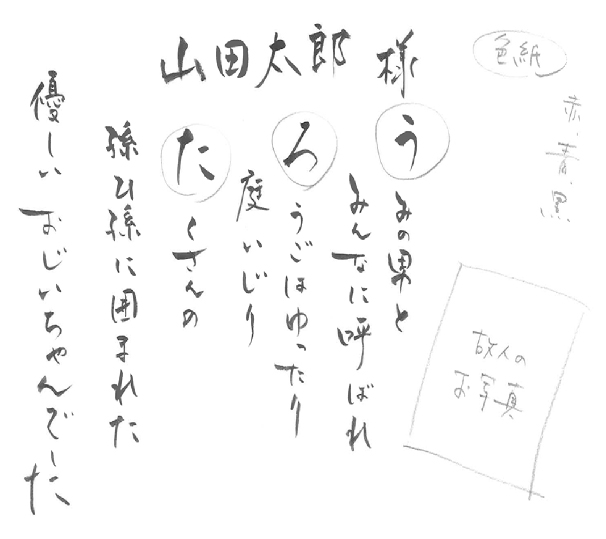 山田太郎 様
うみの男と
みんなに呼ばれ
ろうごはゆったり
庭いじり
たくさんの
孫ひ孫に囲まれた
優しいおじいちゃんでした
色紙
赤、青、黒
故人の
お写真